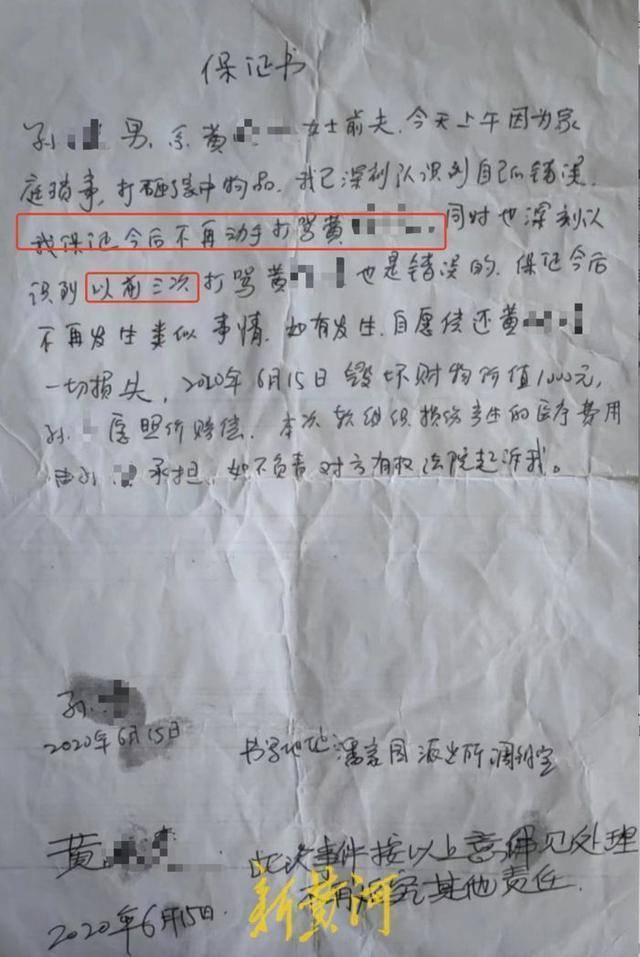 保证书
孙 男,系黄 女士前夫,今天上午因为家
庭琐事,打砸家中物品,我已深刻认识到自己的错误,
我保证今后不再动手打骂黄 ,同时也深刻认
识到以前三次打骂黄 也是错误的,保证今后
不再发生类似事情,如有发生,自愿偿还黄
一切损失,2020年6月15日毁坏财物价值1000元,
孙 愿照价赔偿.本次软组织损伤产生的医疗费用
由孙 承担,如不负责对方有权法院起诉我。
孙
2020年6月15日
书写地址:潘家园派出所调解室
黄
此次事件按以上意见处理
不再 其他责任.
2020年6月15日.
新黄河